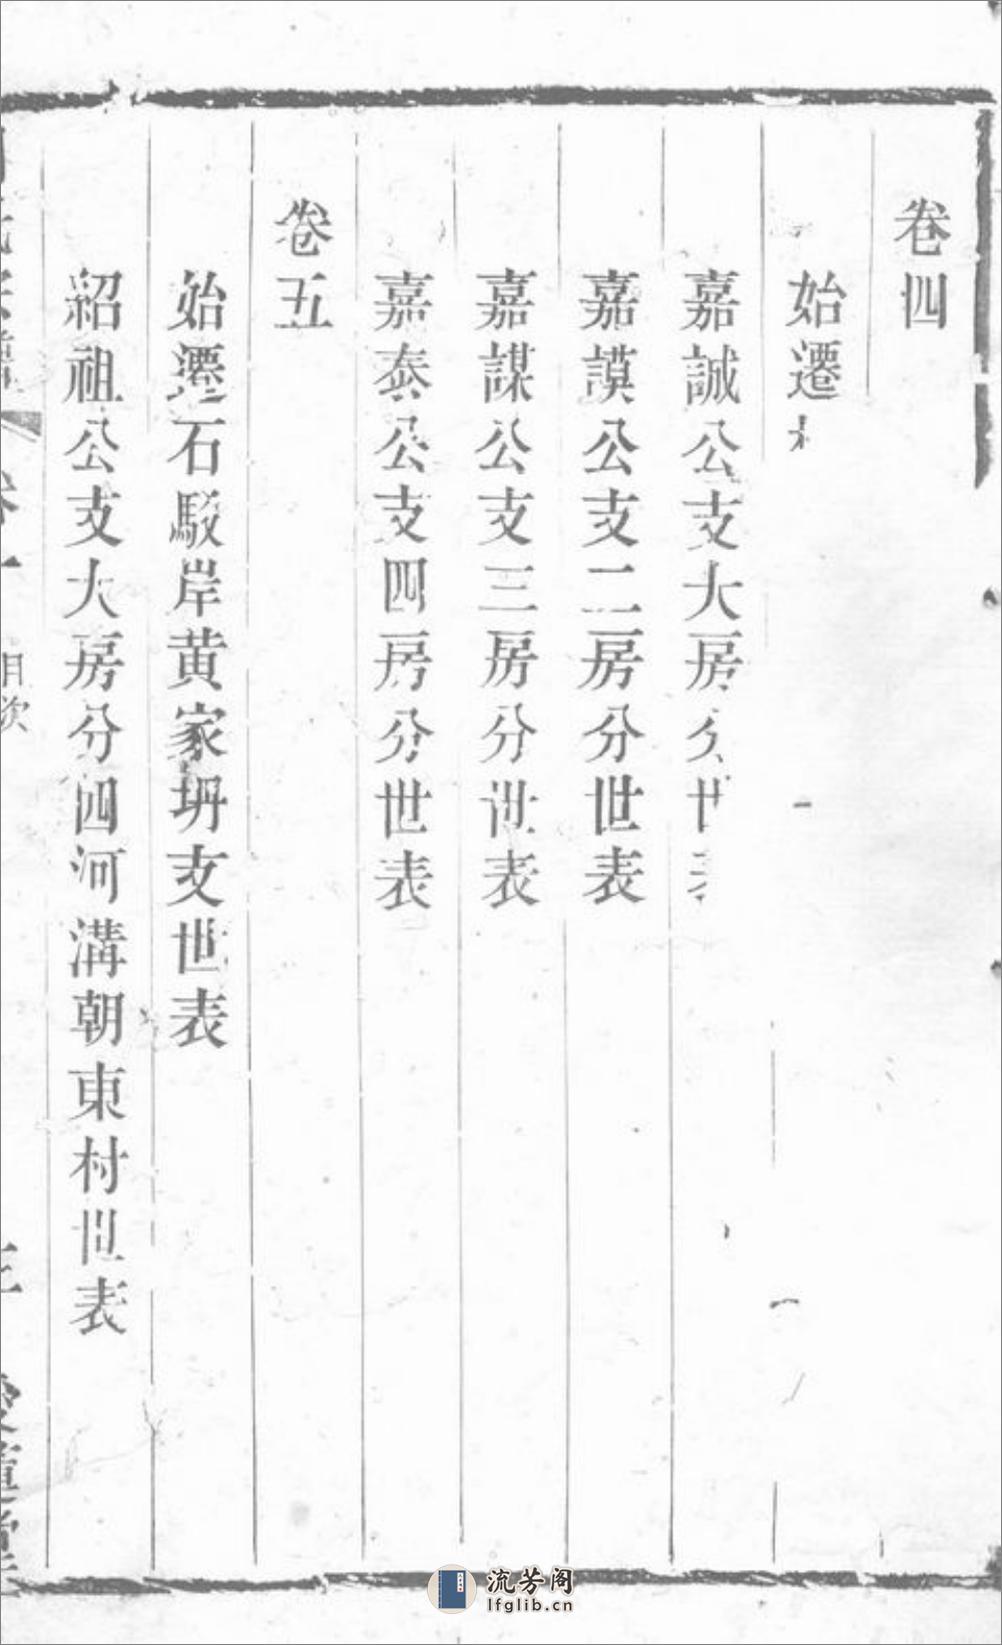 卷四
始遷
嘉誠公支大房分世表
嘉謨公支二房分世表
嘉謀公支三房分世表
嘉泰公支四房分世表
卷五
始遷石駁岸黄家坍支世表
紹祖公支大房分四河溝朝東村世表
目次
流芳阁
lfglib.cn